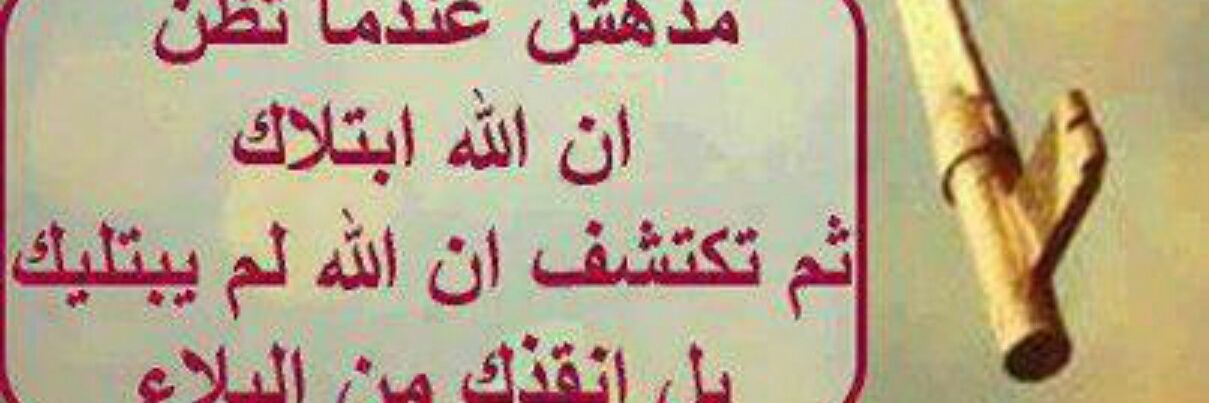 مدهش عندما تظن
ان الله ابتلاك
ثم تكتشف ان الله لم يبتليك
بل انقذك من البلاء